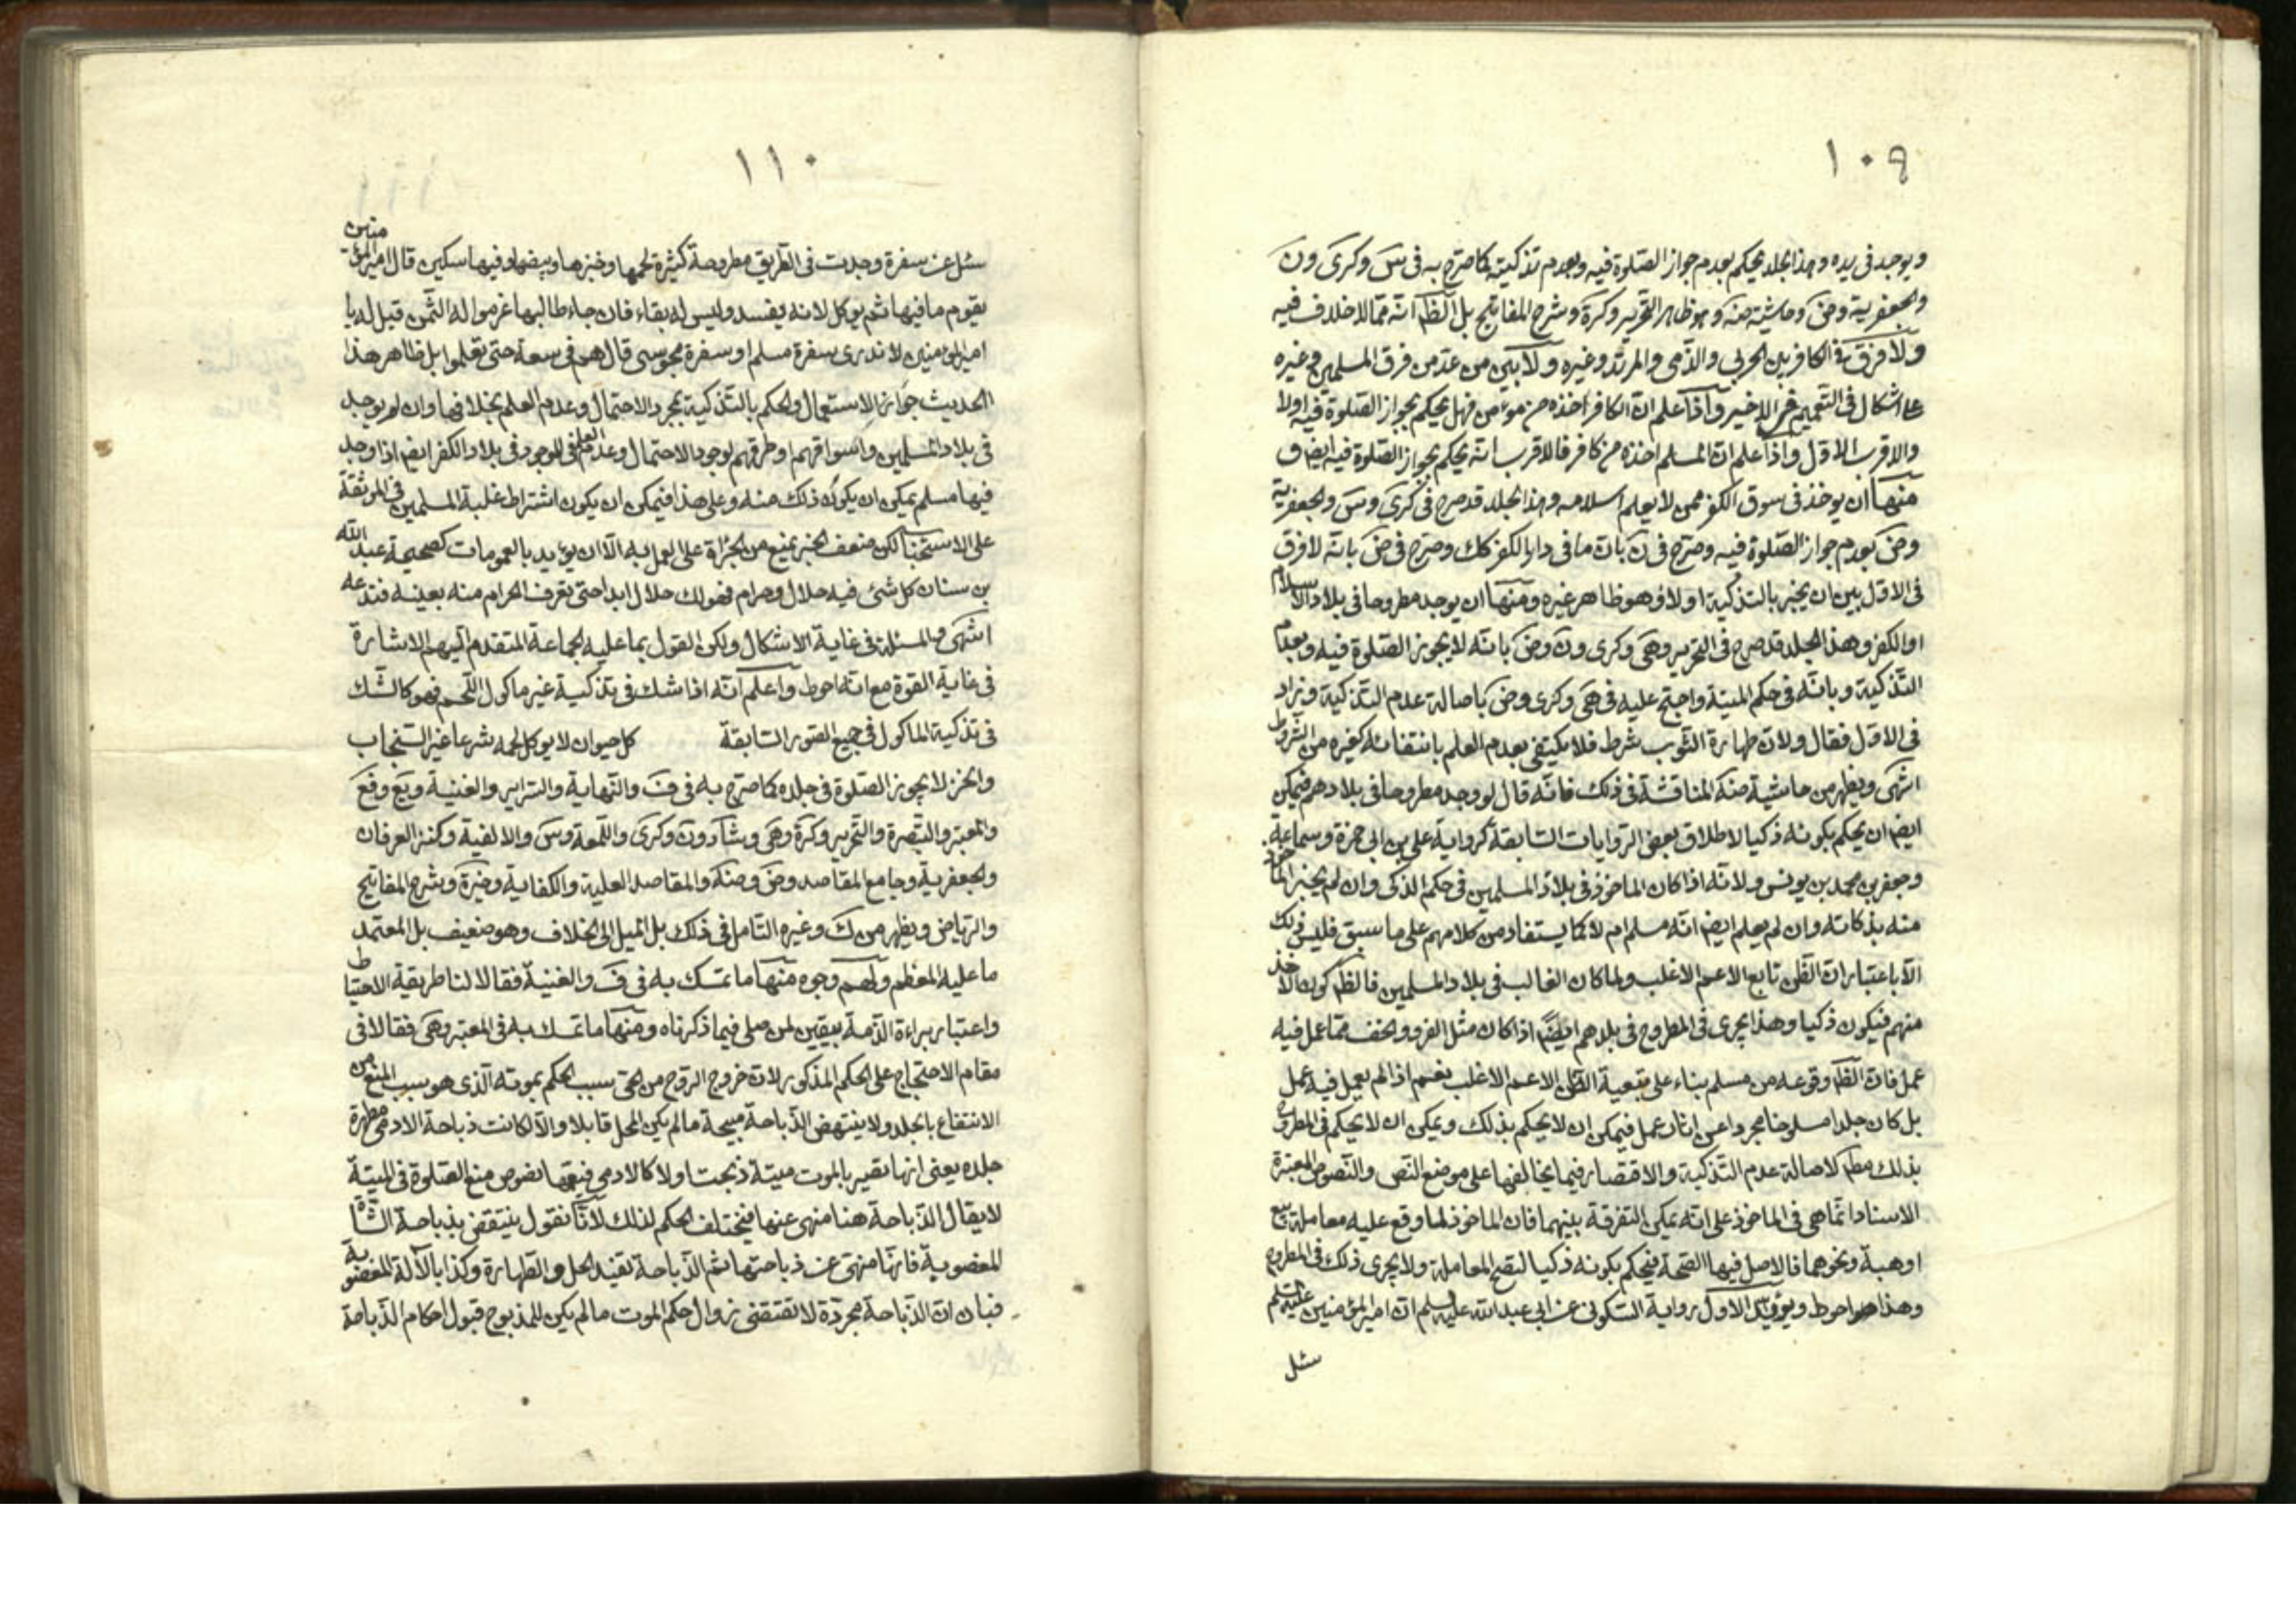 ١٠٩
ويوجد في يده وهذا الجلد يحكم بعدم جواز الصلوة فيه وبعدم تذكيته كما صرح به في س وكرى ون
والجعفرية وض وحاشيته منه وهو ظاهر التحرير وكره وشرح المفاتيح بل الظ انه مما لا خلاف فيه
ولا فرق في الكافر بين الحربي والذمي والمرتد وغيره ولا بين من عد من فرق المسلمين وغيره
على اشكال في التعميم في الاخير واذا علم ان الكافر اخذه من مؤمن فهل يحكم بجواز الصلوة فيه اولا
والاقرب الاول واذا علم ان المسلم اخذه من كافر فالاقرب انه يحكم بجواز الصلوة فيه ايض و
منها ان يوخذ في سوق الكفر ممن لا يعلم اسلامه وهذا الجلد قد صرح في كرى وس والجعفرية
وض بعدم جواز الصلوة فيه وصرح في ن بان ما في دار الكفر كك وصرح في ض بانه لا فرق
في الاول بين ان يخبر بالتذكية اولا وهو ظاهر غيره ومنها ان يوجد مطروحا في بلاد الاسلام
او الكفر وهذا الجلد قد صرح في التحرير وهى وكرى ون وض بانه لا يجوز الصلوة فيه وبعدم
التذكية وبانه في حكم الميتة واحتج عليه في هى وكرى وض باصالة عدم التذكية وزاد
في الاول فقال ولان طهارة الثوب شرط فلا يكتفى بعدم العلم بانتفائه كغيره من الشروط
انتهى ويظهر من حاشية منه المناقشة في ذلك فانه قال لو وجد مطروحا في بلادهم فيمكن
ايض ان يحكم بكونه ذكيا لاطلاق بعض الروايات السابقة كرواية علي بن ابي حمزة وسماعة
وجعفر بن محمد بن يونس ولانه اذا كان الماخوذ في بلاد المسلمين في حكم الذكى وان لم يخبر الماخوذ
منه بذكاته وان لم يعلم ايض انه مسلم ام لا كما يستفاد من كلامهم على ما سبق فليس ذلك
الا باعتبار ان الظن تابع الاعم الاغلب ولما كان الغالب في بلاد المسلمين فالظ كون الاخذ
منهم فيكون ذكيا وهذا يجرى في المطروح في بلدهم ايضا اذا كان مثل الفرو والخف مما عمل فيه
عمل فان الظ وقوعه من مسلم بناء على تبعية الظن الاعم الاغلب نعم اذا لم يعمل فيه عمل
بل كان جلدا مسلوخا مجردا عن اثار عمل فيمكن ان لا يحكم بذلك ويمكن ان لا يحكم في المطروح
بذلك مط لاصالة عدم التذكية والاقتصار فيما يخالفها على موضع النص والنصوص المعتبرة
الاسناد انما هى في الماخوذ على انه يمكن التفرقة بينهما فان الماخوذ لما وقع عليه معاملة بيع
او هبة ونحوهما فالاصل فيها الصحة فيحكم بكونه ذكيا لتصح المعاملة ولا يجرى ذلك في المطروح
وهذا هو احوط ويؤيد الاول رواية السكوني عن ابي عبد الله عليه السلم ان امير المؤمنين عليه السلم
سئل
١١٠
سئل عن سفرة وجدت في الطريق مطروحة كثيرة لحمها وخبزها وبيضها وفيها سكين قال امير المؤمنين
يقوم ما فيها ثم يوكل لانه يفسد وليس له بقاء فان جاء طالبها غرموا له الثمن قيل له يا
امير المؤمنين لا ندرى سفرة مسلم او سفرة مجوسى قال هم في سعة حتى يعلموا بل ظاهر هذا
الحديث جواز الاستعمال والحكم بالتذكية بمجرد الاحتمال وعدم العلم بخلافها وان لم يوجد
في بلاد المسلمين واسواقهم وطرقهم لوجود الاحتمال وعدم العلم في الموجود في بلاد الكفر ايض اذا وجد
فيها مسلم يمكن ان يكون ذلك منه وعلى هذا فيمكن ان يكون اشتراط غلبة المسلمين في الموثقة
على الاستحباب لكن ضعف الخبر يمنع من الجرأة على العمل به الا ان يؤيد بالعمومات كصحيحة عبد الله
بن سنان كل شئ فيه حلال وحرام فهو لك حلال ابدا حتى تعرف الحرام منه بعينه فتدعه
انتهى والمسئلة في غاية الاشكال ولكن القول بما عليه الجماعة المتقدم اليهم الاشارة
في غاية القوة مع انه احوط واعلم انه اذا شك في تذكية غير ماكول اللحم فهو كالشك
في تذكية الماكول في جميع الصور السابقة كل حيوان لا يوكل لحمه شرعا غير السنجاب
والخز لا يجوز الصلوة في جلده كما صرح به في ف والنهاية والسراير والغنية ويع وفع
والمعتبر والتبصرة والتحرير وكره وهى وشاد ون وكرى واللمعة وس والالفية وكنز العرفان
والجعفرية وجامع المقاصد وض ومنه والمقاصد العلية والكفاية وخيرة وشرح المفاتيح
والرياض ويظهر من ك وغيره التامل في ذلك بل الميل الى الخلاف وهو ضعيف بل المعتمد
ما عليه المعظم ولهم وجوه منها ما تمسك به في ف والغنية فقالا لنا طريقة الاحتياط
واعتبار براءة الذمة بيقين لمن صلى فيما ذكرناه ومنها ما تمسك به في المعتبر وهى فقالا في
مقام الاحتجاج على الحكم المذكور لان خروج الروح من الحى سبب الحكم بموته الذى هو سبب المنع من
الانتفاع بالجلد ولا ينتهض الذباحة مبيحة ما لم يكن المحل قابلا والا لكانت ذباحة الادمى مطهرة
جلده يعنى انها تصير بالموت ميتة ذبحت اولا كالادمى فيعمها نصوص منع الصلوة في الميتة
لا يقال الذباحة هنا منهى عنها فيختلف الحكم لذلك لانا نقول ينتقض بذباحة الشاة
المغصوبة فانها منهى عن ذباحتها ثم الذباحة تفيد الحل والطهارة وكذا بالآلة المغصوبة
فبان ان الذباحة مجردة لا تقتضى زوال حكم الموت ما لم يكن للمذبوح قبول احكام الذباحة